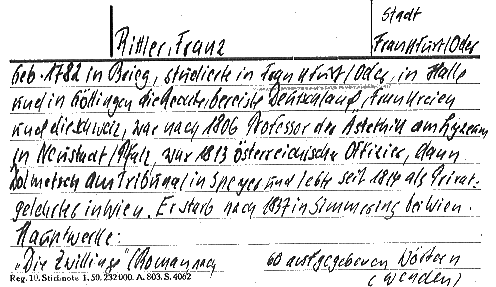 Stadt
Rittler, Franz
Frankfurt/Oder
Geb. 1782 in Brieg, studierte in Frankfurt/Oder, in Halle
und in Göttingen die Rechte bereiste Deutschland, Frankreich
und die Schweiz, war nach 1806 Professor der Ästethik am Lyzeum
in Neustadt/Pfalz, war 1813 österreichischer Offizier, dann
Dolmetsch am Tribunal in Speyer und lebte seit 1814 als Privat-
gelehrter in Wien. Er starb nach 1837 in Simmering bei Wien.
Hauptwerke:
"Die Zwillinge" (Roman nach 60 aufgegebenen Wörtern
(wenden)
Reg. 10. Stichnote 1. 50. 232 000. A. 803. S. 4062